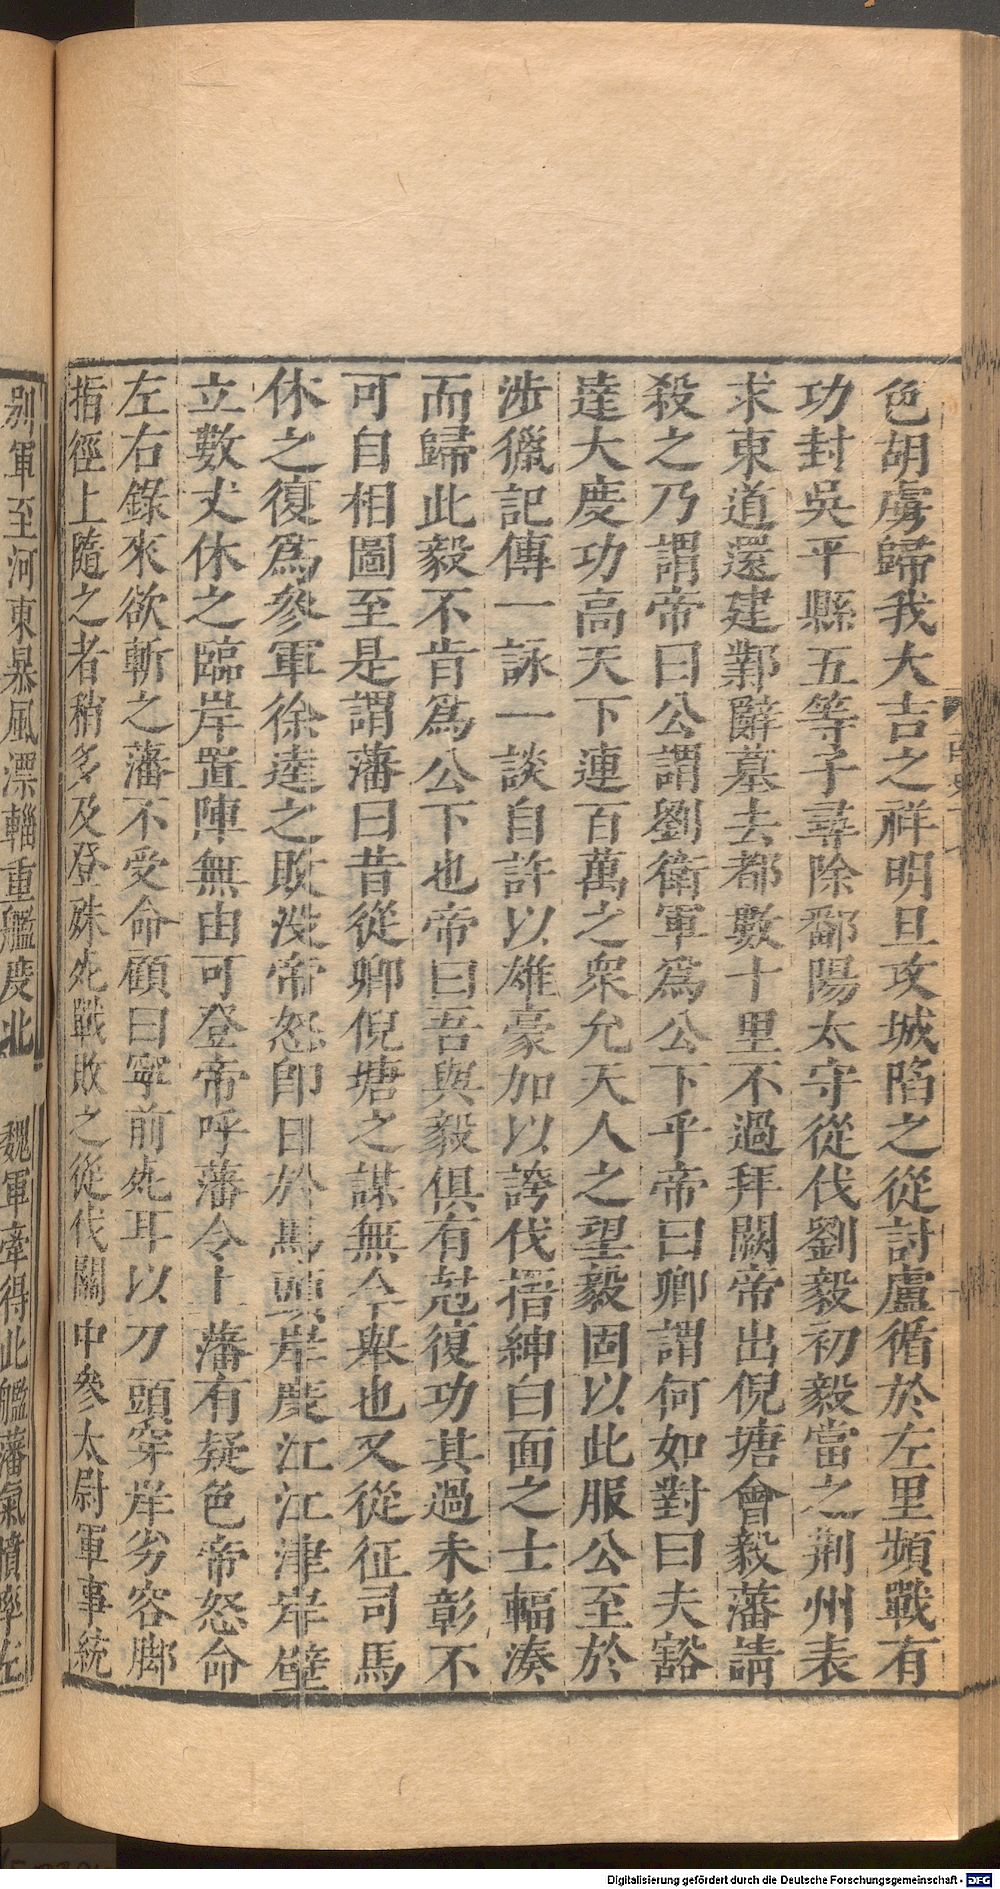 色胡虜歸我大吉之祥明旦攻城陷之從討盧循於左里頻戰有
功封吳平縣五等子尋除鄱陽太守從伐劉毅初毅當之荆州表
求東道還建鄴辭墓去都數十里不過拜闕帝出倪塘會毅藩請
殺之乃謂帝曰公謂劉衛軍爲公下乎帝曰卿謂何如對曰夫豁
達大度功高天下連百萬之衆允天人之望毅固以此服公至於
涉獵記傳一詠一談自許以雄豪加以誇伐搢紳白面之士輻湊
而歸此毅不肯爲公下也帝曰吾與毅俱有尅復功其過未彰不
可自相圖至是謂藩曰昔從卿倪塘之謀無今舉也又從征司馬
休之復爲參軍徐逵之敗没帝怒卽日於馬頭岸度江江津岸壁
立數丈休之臨岸置陣無由可登帝呼藩令上藩有疑色帝怒命
左右錄來欲斬之藩不受命顧曰寧前死耳以刀頭穿岸劣容脚
指徑上隨之者稍多及登殊死戰敗之從伐關中參太尉軍事統
別軍至河東暴風漂輜重艦度北 魏軍牽得此艦藩氣憤率左
Digitalisierung gefördert durch die Deutsche Forschungsgemeinschaft - DFG